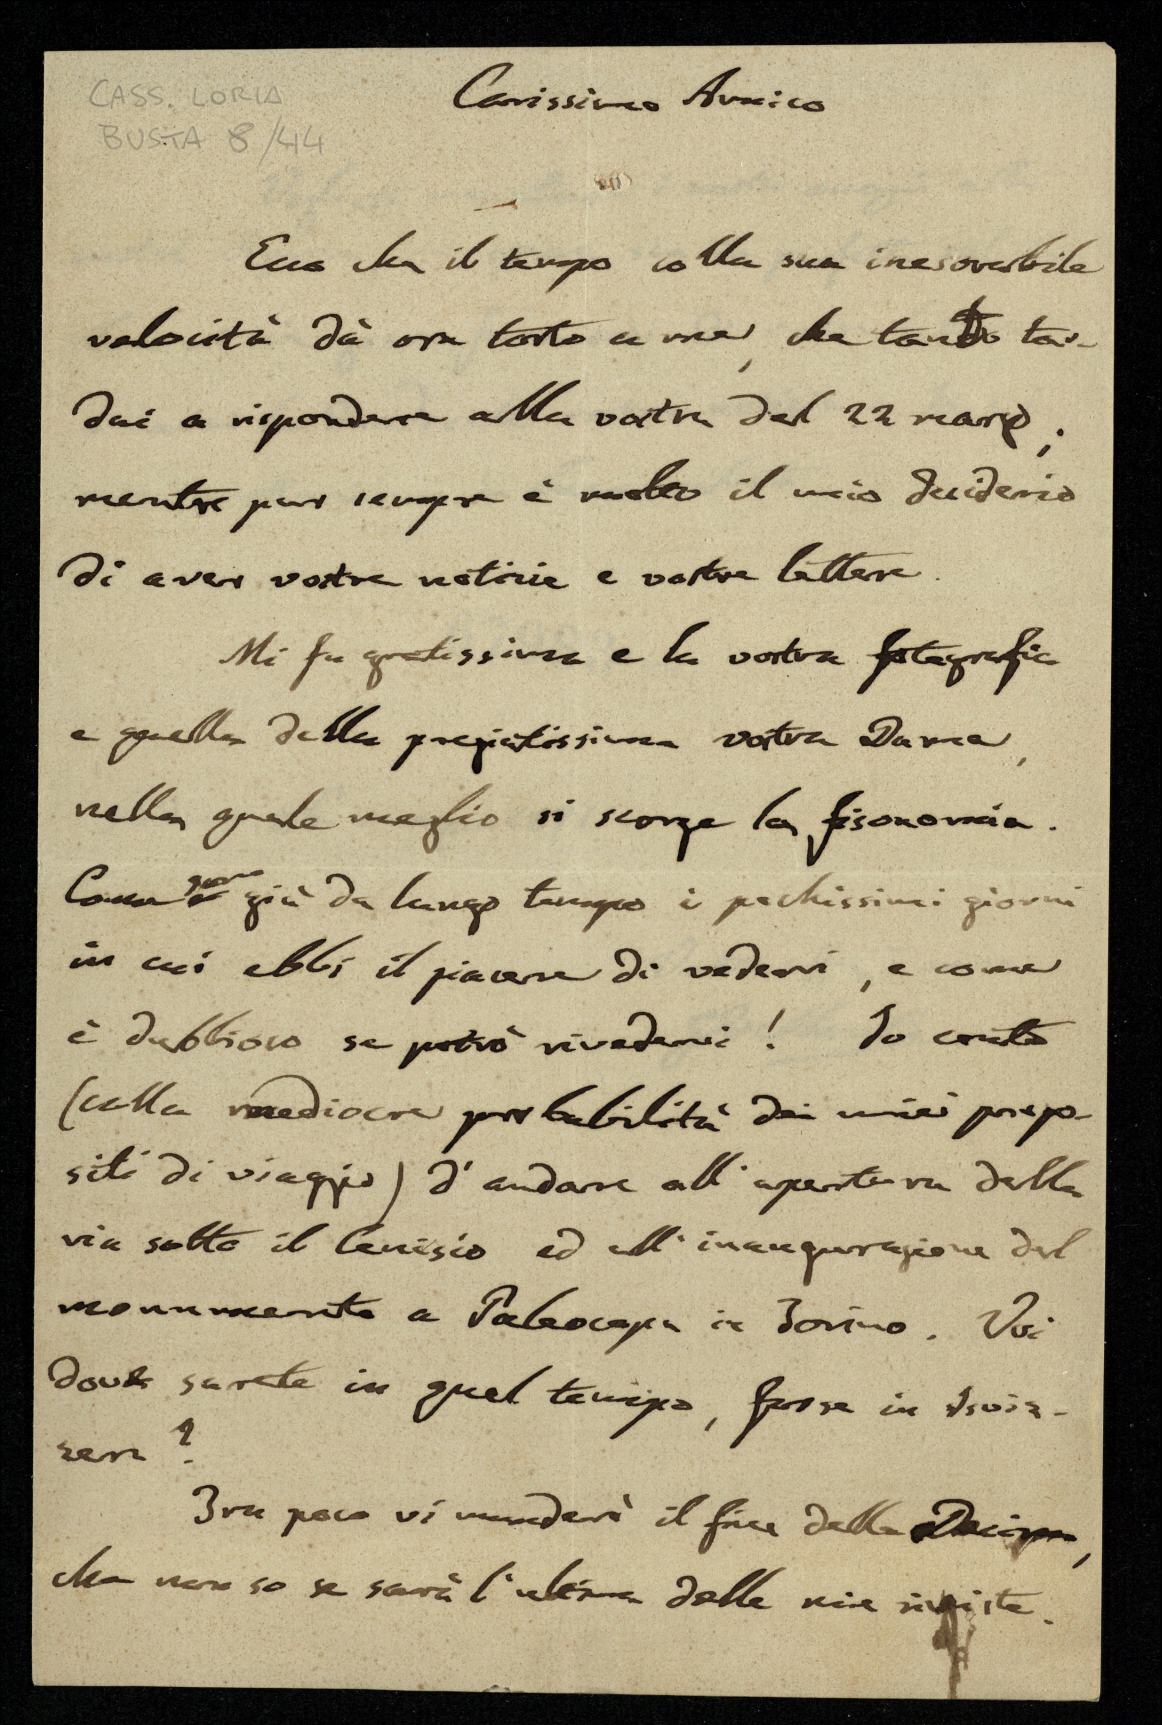 CASS. LORIA
BUSTA 8/44
Carissimo Amico
Ecco che il tempo colla sua inesorabile
velocità dà ora torto a me, che tanto tar-
dai a rispondere alla vostra del 22 marzo;
mentre pur sempre è molto il mio desiderio
di aver vostre notizie e vostre lettere.
Mi fu gratissima e la vostra fotografia
e quella della pregiatissima vostra Dama,
nella quale meglio si scorge la fisonomia.
Come sono già da lungo tempo i pochissimi giorni
in cui ebbi il piacere di vedervi, e come
è dubbioso se potrò rivedervi! Io conto
(colla mediocre probabilità dei miei propo-
siti di viaggio) d'andare all'apertura della
via sotto il Cenisio ed all'inaugurazione del
monumento a Paleocapa in Torino. Voi
dove sarete in quel tempo, forse in Isviz-
zera?
Tra poco vi manderò il fine della Decima,
che non so se sarà l'ultima delle mie riviste.